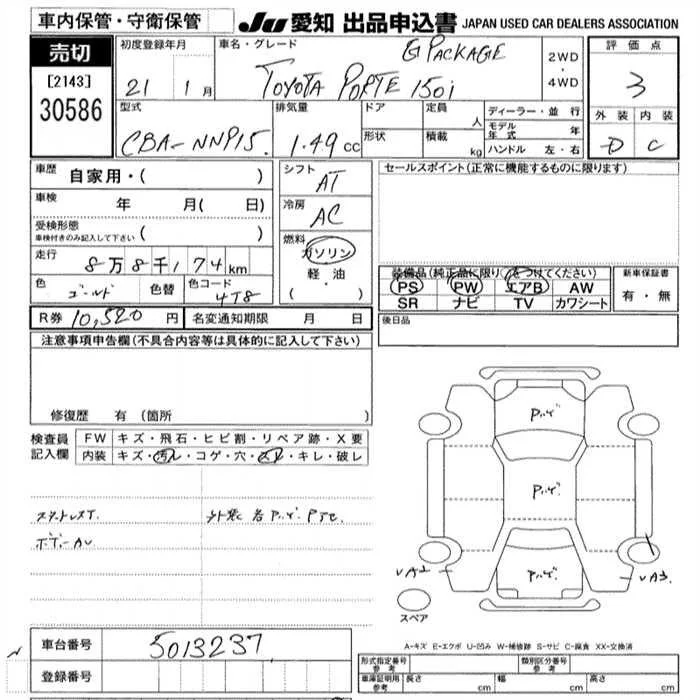 車内保管・守衛保管
JU 愛知 出品申込書 JAPAN USED CAR DEALERS ASSOCIATION
売切
[2143]
30586
初度登録年月
21 1 月
車名・グレード
G PACKAGE
TOYOTA PORTE 150i
2WD
・
4WD
評価点
3
外装 内装
D C
型式
CBA-NNP15.
排気量
1.49 cc
ドア
形状
定員
人
積載
kg
ディーラー・並行
モデル年式 年
ハンドル 左・右
車歴
自家用・( )
車検 年 月( 日)
受検形態
車検付きのみ記入して下さい ( )
走行
8万8千174km
色
ゴールド
色替
色コード
4T8
シフト
AT
冷房
AC
燃料
ガソリン
軽・油
( ・ )
セールスポイント(正常に機能するものに限ります)
装備品(純正品に限り○をつけてください)
PS PW エアB AW
SR ナビ TV カワシート
新車保証書
有・無
R券 10,520 円
名変通知期限 月 日
後日品
注意事項申告欄(不具合内容等は具体的に記入して下さい)
修復歴 有 (箇所 )
検査員記入欄
FW キズ・飛石・ヒビ割・リペア跡・X要
内装 キズ・汚レ・コゲ・穴・スレ・キレ・破レ
スタットレスT.
ボデーAU
P.ハゲ.
P.ハゲ.
P.ハゲ.
UA2
UA3
スペア
A-キズ E-エクボ U-凹み W-補修跡 S-サビ C-腐食 XX-交換済
車台番号 5013237
登録番号
形式指定番号
参考
類別区分番号
参考
車庫証明用
参考
長さ cm 幅 cm 高さ cm